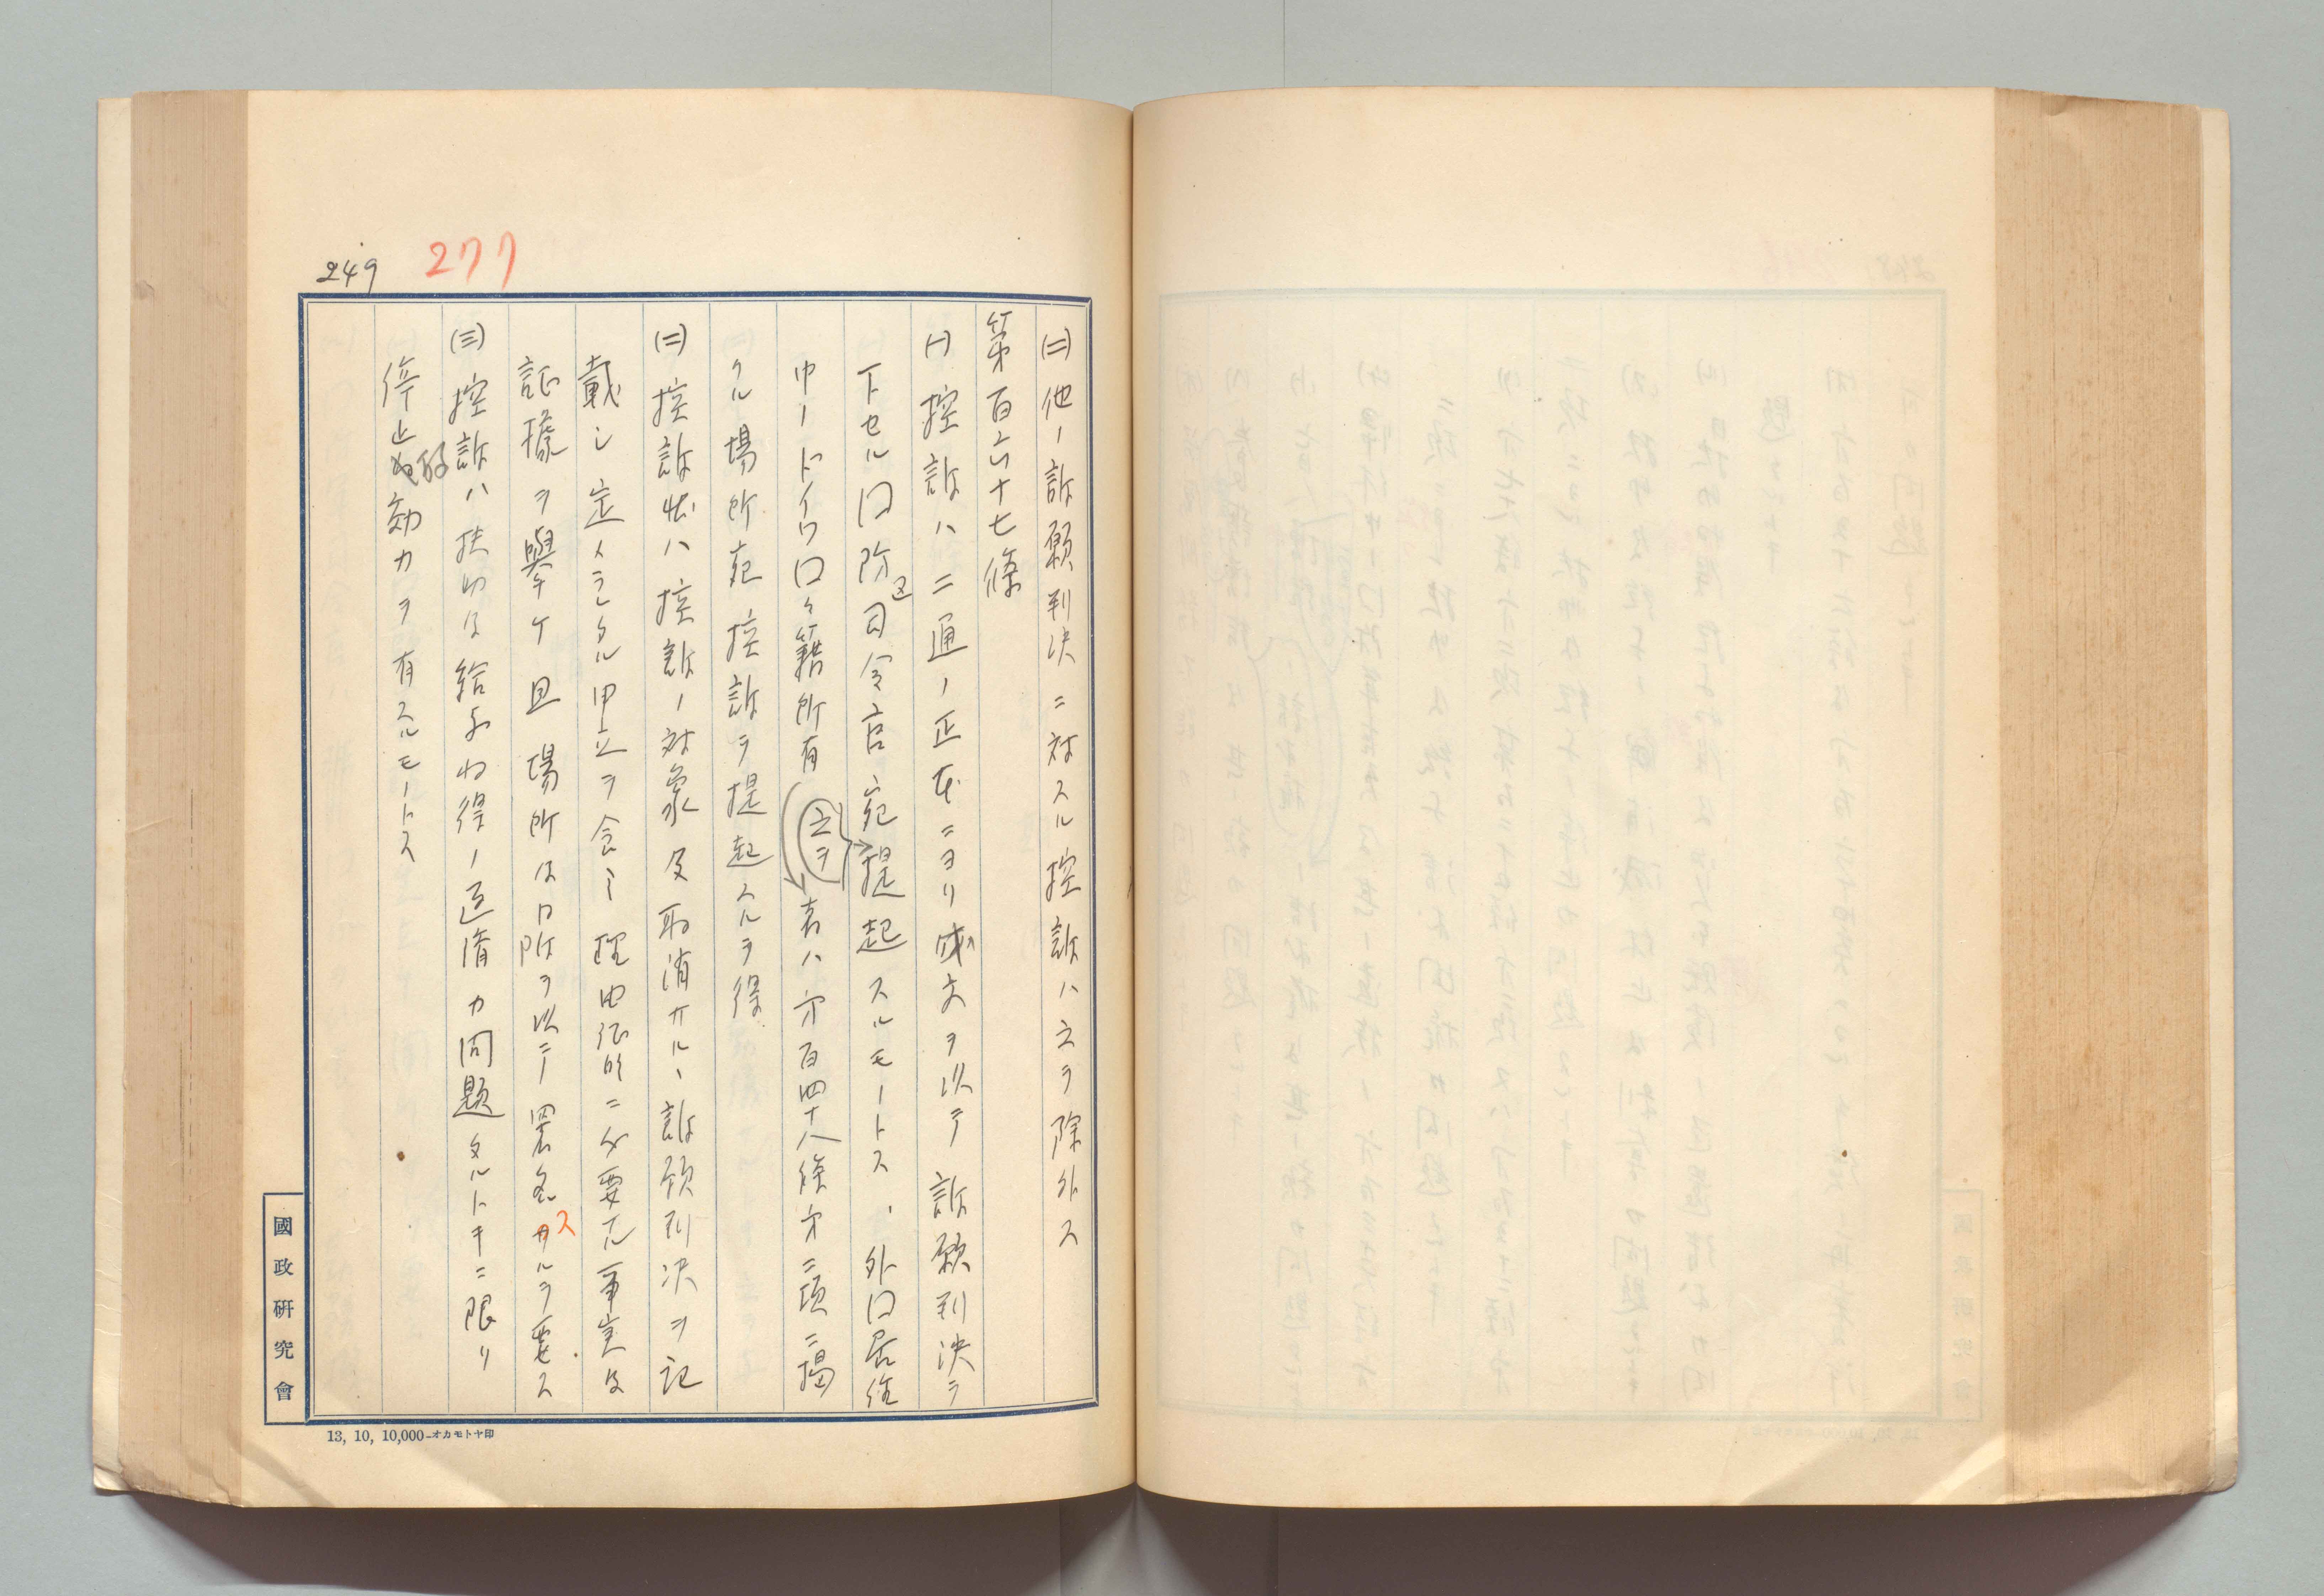 249
277
(二) 他ノ訴願判決ニ対スル控訴ハ之ヲ除外ス
第百六十七條
(一) 控訴ハ二通ノ正本ニヨリ成文ヲ以テ訴願判決ヲ
下セル口防区司令官宛提起スルモノトス、外口居住
中ノドイツ口々籍所有(之ヲ)者ハ才百四十八條才二項ニ掲
クル場所宛控訴ヲ提起スルヲ得
(二) 控訴状ハ控訴ノ対象及取消サル、訴願判決ヲ記
載シ定メラレタル申立ヲ含ミ理由付ニ必要ナル事実及
証據ヲ擧ケ且場所及日附ヲ以テ署名スルヲ要ス
(三) 控訴ハ扶助及給与ノ追膊カ問題タルトキニ限リ
停止的効力ヲ有スルモノトス
國政研究會
13, 10, 10,000-オカモトヤ印